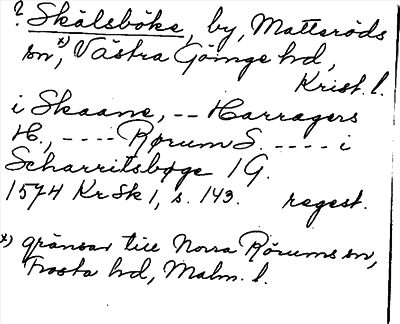 ? Skälsböke, by, Matteröds
sn,x) Västra Göinge hd,
Krist. l.
i Skaane, -- Harragers
H., ---- Rørum S. ---- i
Scharritsbøge 1 G.
1574 KrSk 1, s. 143. regest.
x) gränsar till Norra Rörums sn,
Frosta hd, Malm. l.